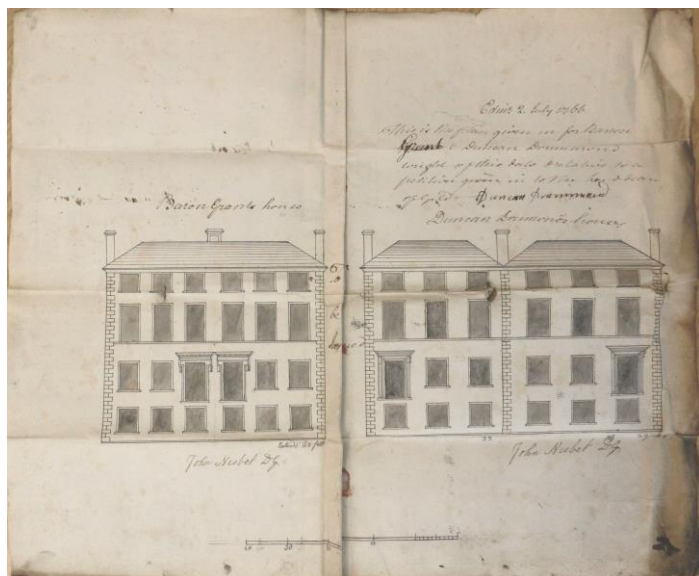 Edinr 2. July 1766
This is the plan given in for Baron
Grant & Duncan Drummond
wright of this date relative to a
petition given in to the
of Gild Duncan Drummond
Baron Grants house
Duncan Drumonds house
to
be
John Nisbet Df.
John Nisbet Df.